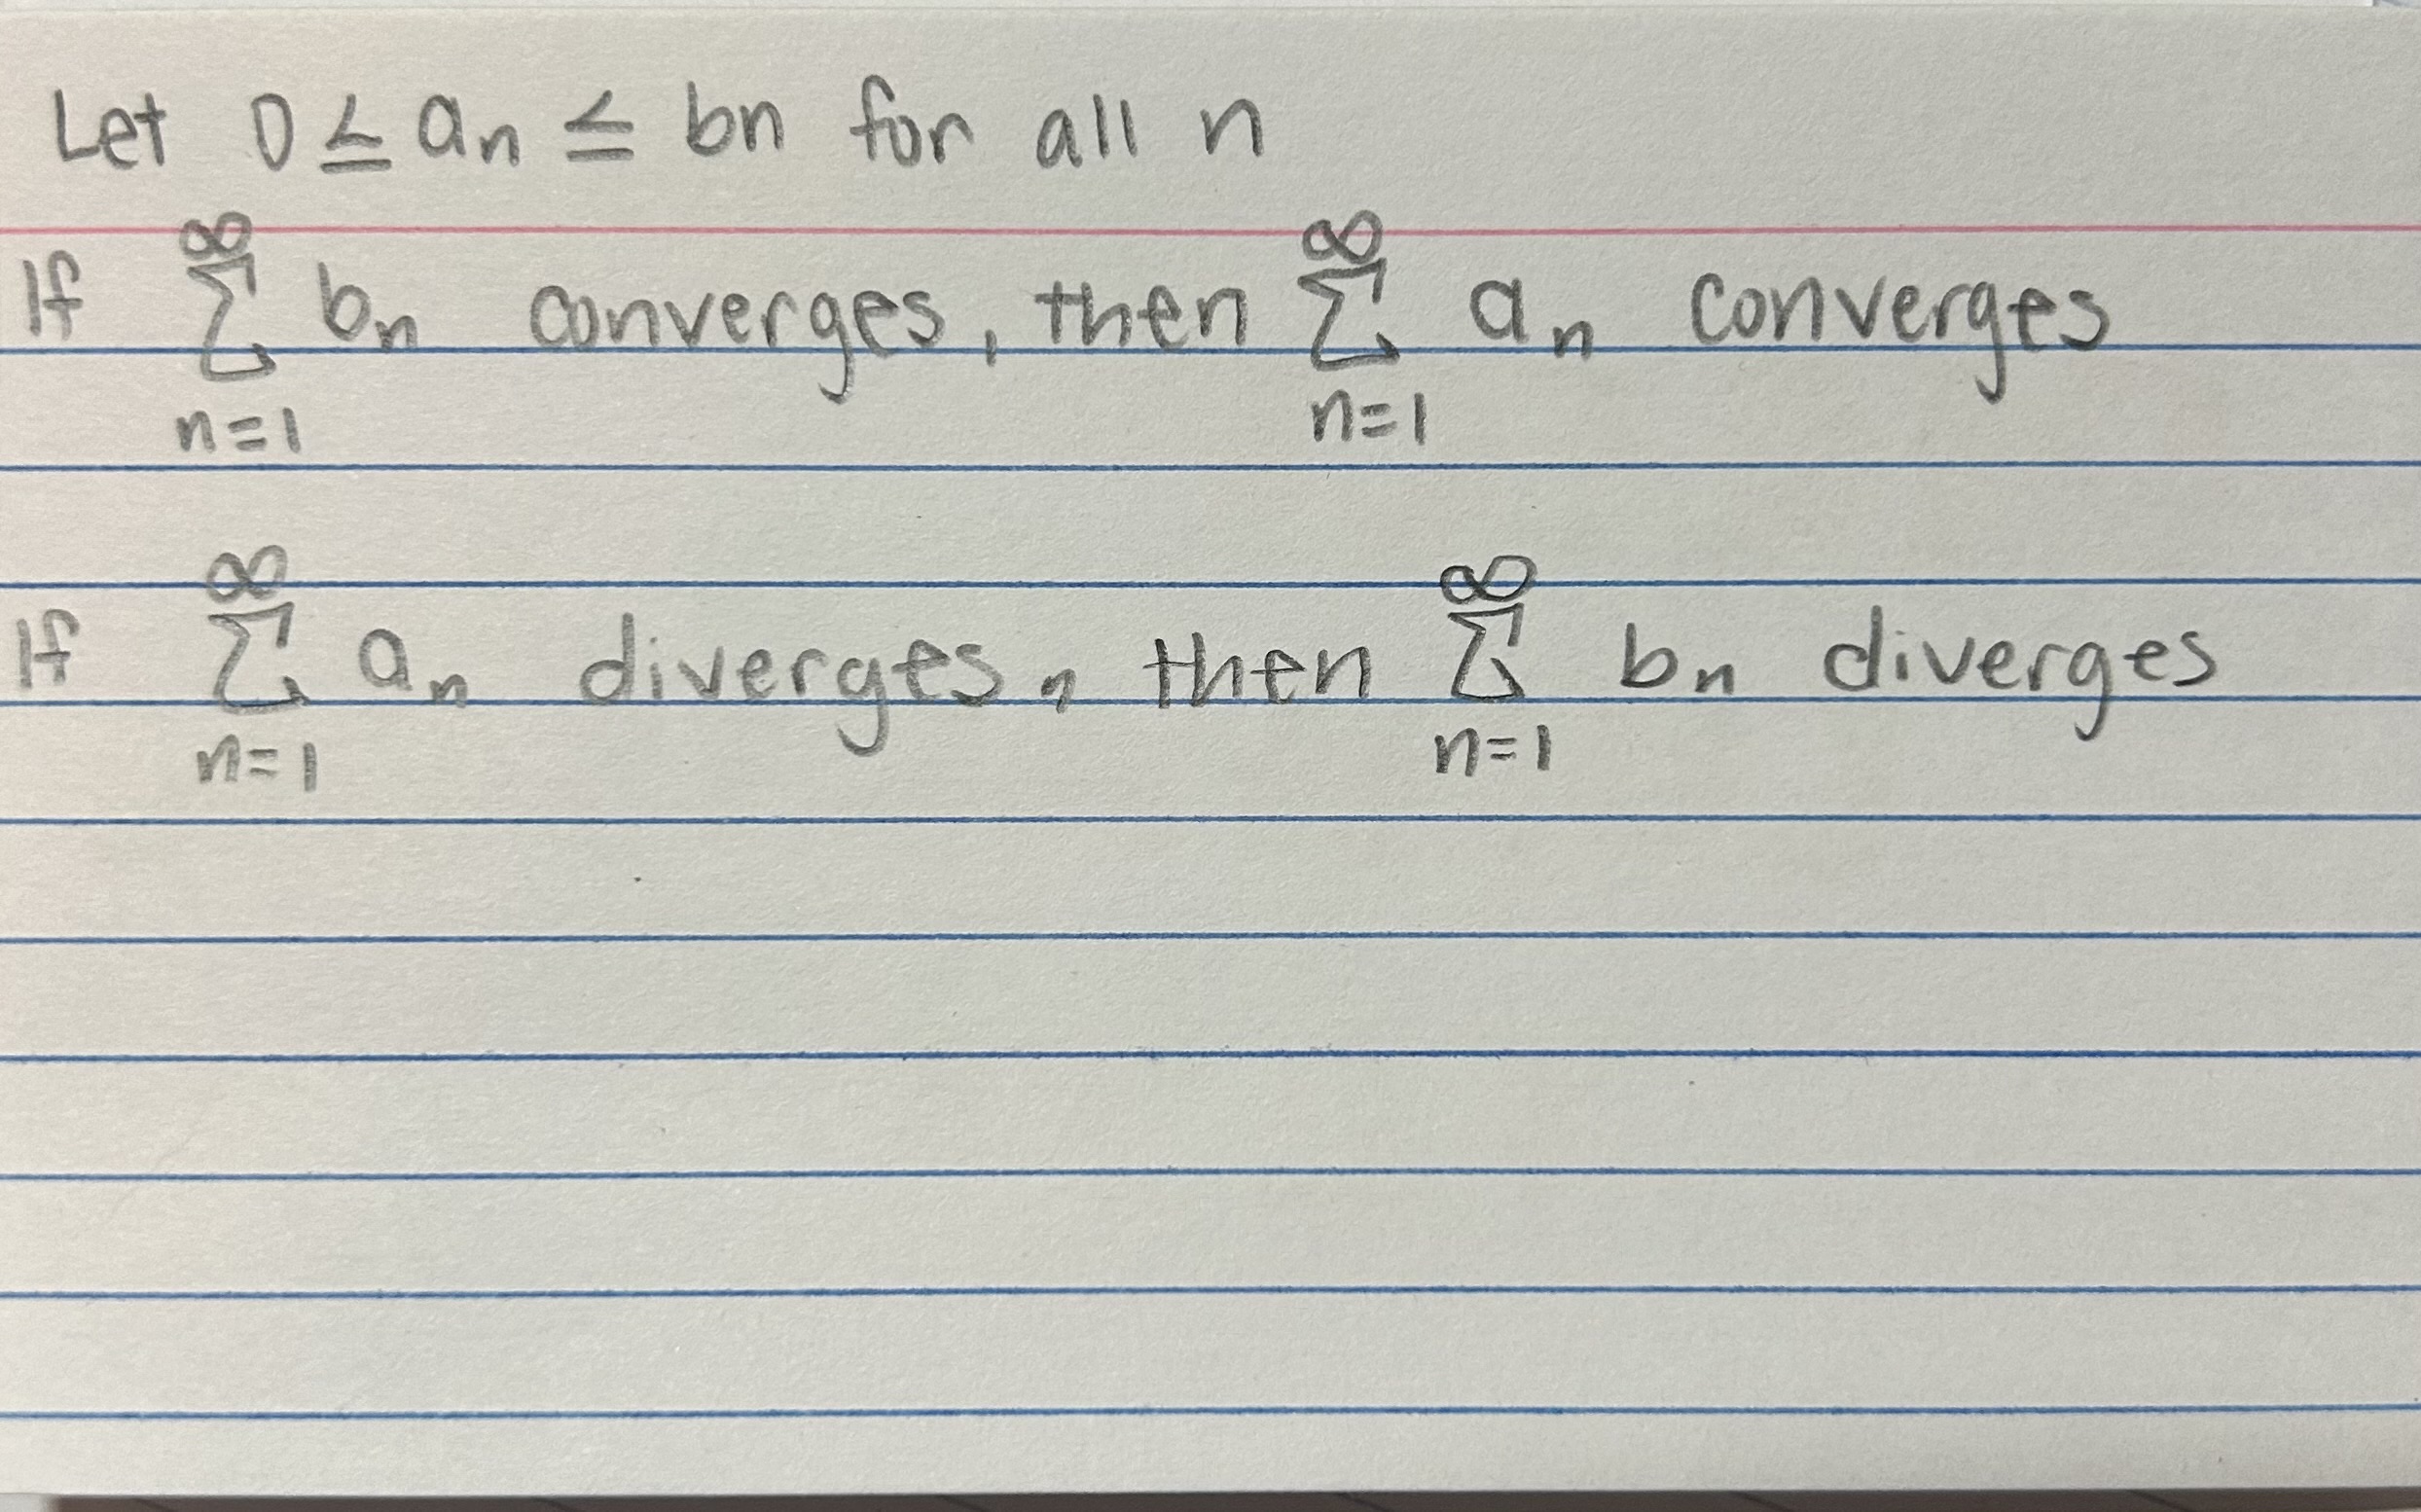 Let 0 ≤ aₙ ≤ bn for all n
If ∞∑n=1 bₙ converges, then ∞∑n=1 aₙ converges
If ∞∑n=1 aₙ diverges, then ∞∑n=1 bₙ diverges